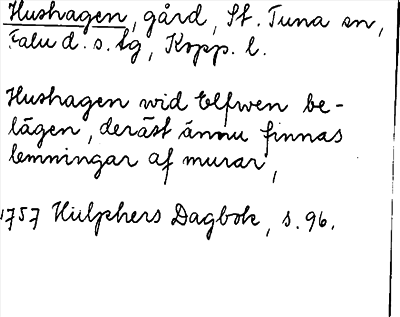 Hushagen, gård, St. Tuna sn,
Falu d. s. tg, Kopp. l.
Hushagen wid Elfwen be-
lägen, deräst ännu finnas
lemningar af murar,
1757 Hülphers Dagbok, s. 96.